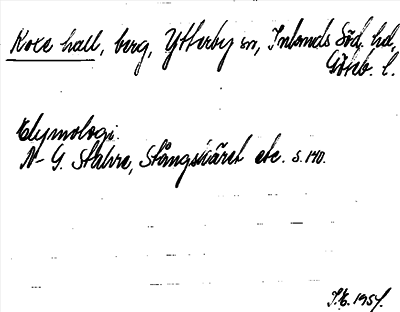 Koxe hall, berg, Ytterby sn, Inlands Söd. hd,
Göteb. l.
Etymologi.
N-G. Stahre, Stångskäret etc. s. 140.
1957.